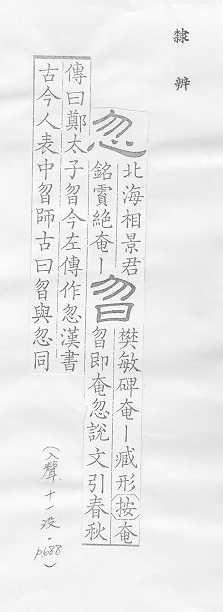 隸辨
忽北海相景君
銘霣絕奄ー曶樊敏碑奄ー臧形按奄
曶即奄忽說文引春秋
傳曰鄭太子曶今左傳作忽漢書
古今人表中曶師古曰曶與忽同
(入聲十一没·p688)